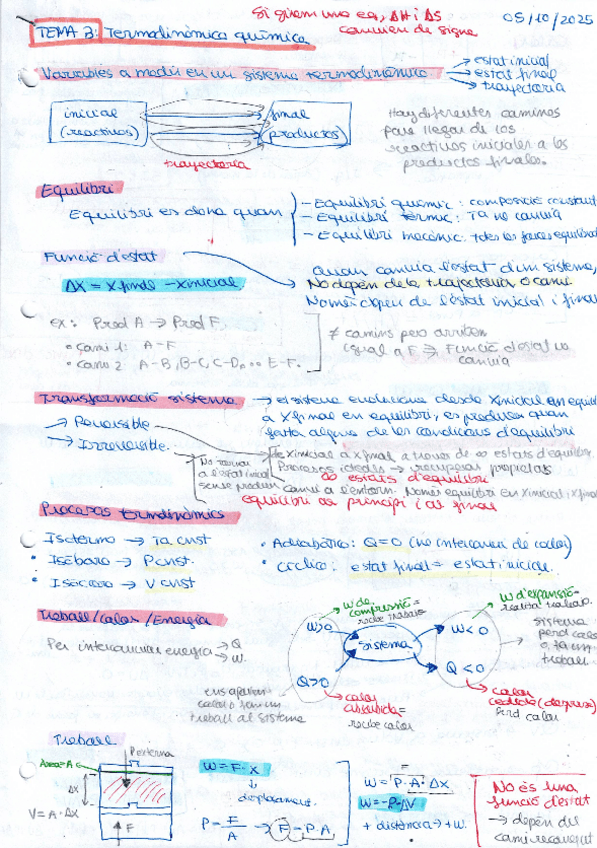 Si giram una eq, ΔH i ΔS
canvien de signe
05/10/2025
TEMA 3: Termodinàmica química
Variables a medir en un sistema termodinàmico
→ estat inicial
→ estat final
→ trayectoria
inicial
(reactivos)
final
productos)
trayectoria
Hay diferentes caminos
para llegar de los
reactivos iniciales a los
productos finales.
Equilibri
Equilibri es dona quan
- Equilibri químic: composició constant
- Equilibri tèrmic: Ta no canvia
- Equilibri mecànic: tdes les forces equilibrad
Funció d'estat
ΔX = X final - X inicial
Quan canvia l'estat d'un sistema,
No depèn de la trajectoria o camí
Només depen de l'estat inicial i final
ex: Prod A → Prod F.
• camí 1: A - F
• camí 2 A-B, B-C, C-D, ... E-F.
≠ camins pero arriben
igual a F ⇒ Funció d'estat no
canvia
Transformació sistema
→ el sistema evoluciona desde Xinicial en equili
a Xfinal en equilibri, es produeix quan
falta alguna de les condicions d'equilibri
→ Reversible
→ Irreversible
de Xinicial a Xfinal a traves de ∞ estats d'equilibri.
Processos ideals → recuperar propietats
∞ estats d'equilibri
No tornar
a l'estat inicial
sense produir
canvi a l'entorn. Només equilibri en Xinicial i Xfinal
equilibri al principi i al final
Procesos termdinàmics
• Isotermo → Ta cnst
• Isóbaro → P cnst.
• Isócoro → V cnst
• Adiabático: Q=0 (no intercanvi de calor)
• Cíclico: estat final = estat inicial.
Treball/calor/Energía
Per intercanviar energia → Q
→ W.
W de
compressió =
recibe trabajo
W>0
Q>0
sistema
W<0
Q<0
W d'expansió =
realita trabajo.
sistema
perd calor
o fa un
treball
calor
absorbida =
recibe calor
calor
cedida (despres)
perd calor
treball al sistema
Treball
P externa
Area = A
ΔX
V = A · ΔX
F
W = F · X
desplaçament.
P = F/A → F = P · A.
W = P · A · ΔX
W = -P·ΔV
+ distància → +W.
No es una
funció d'estat
→ depèn del
camí recorregut